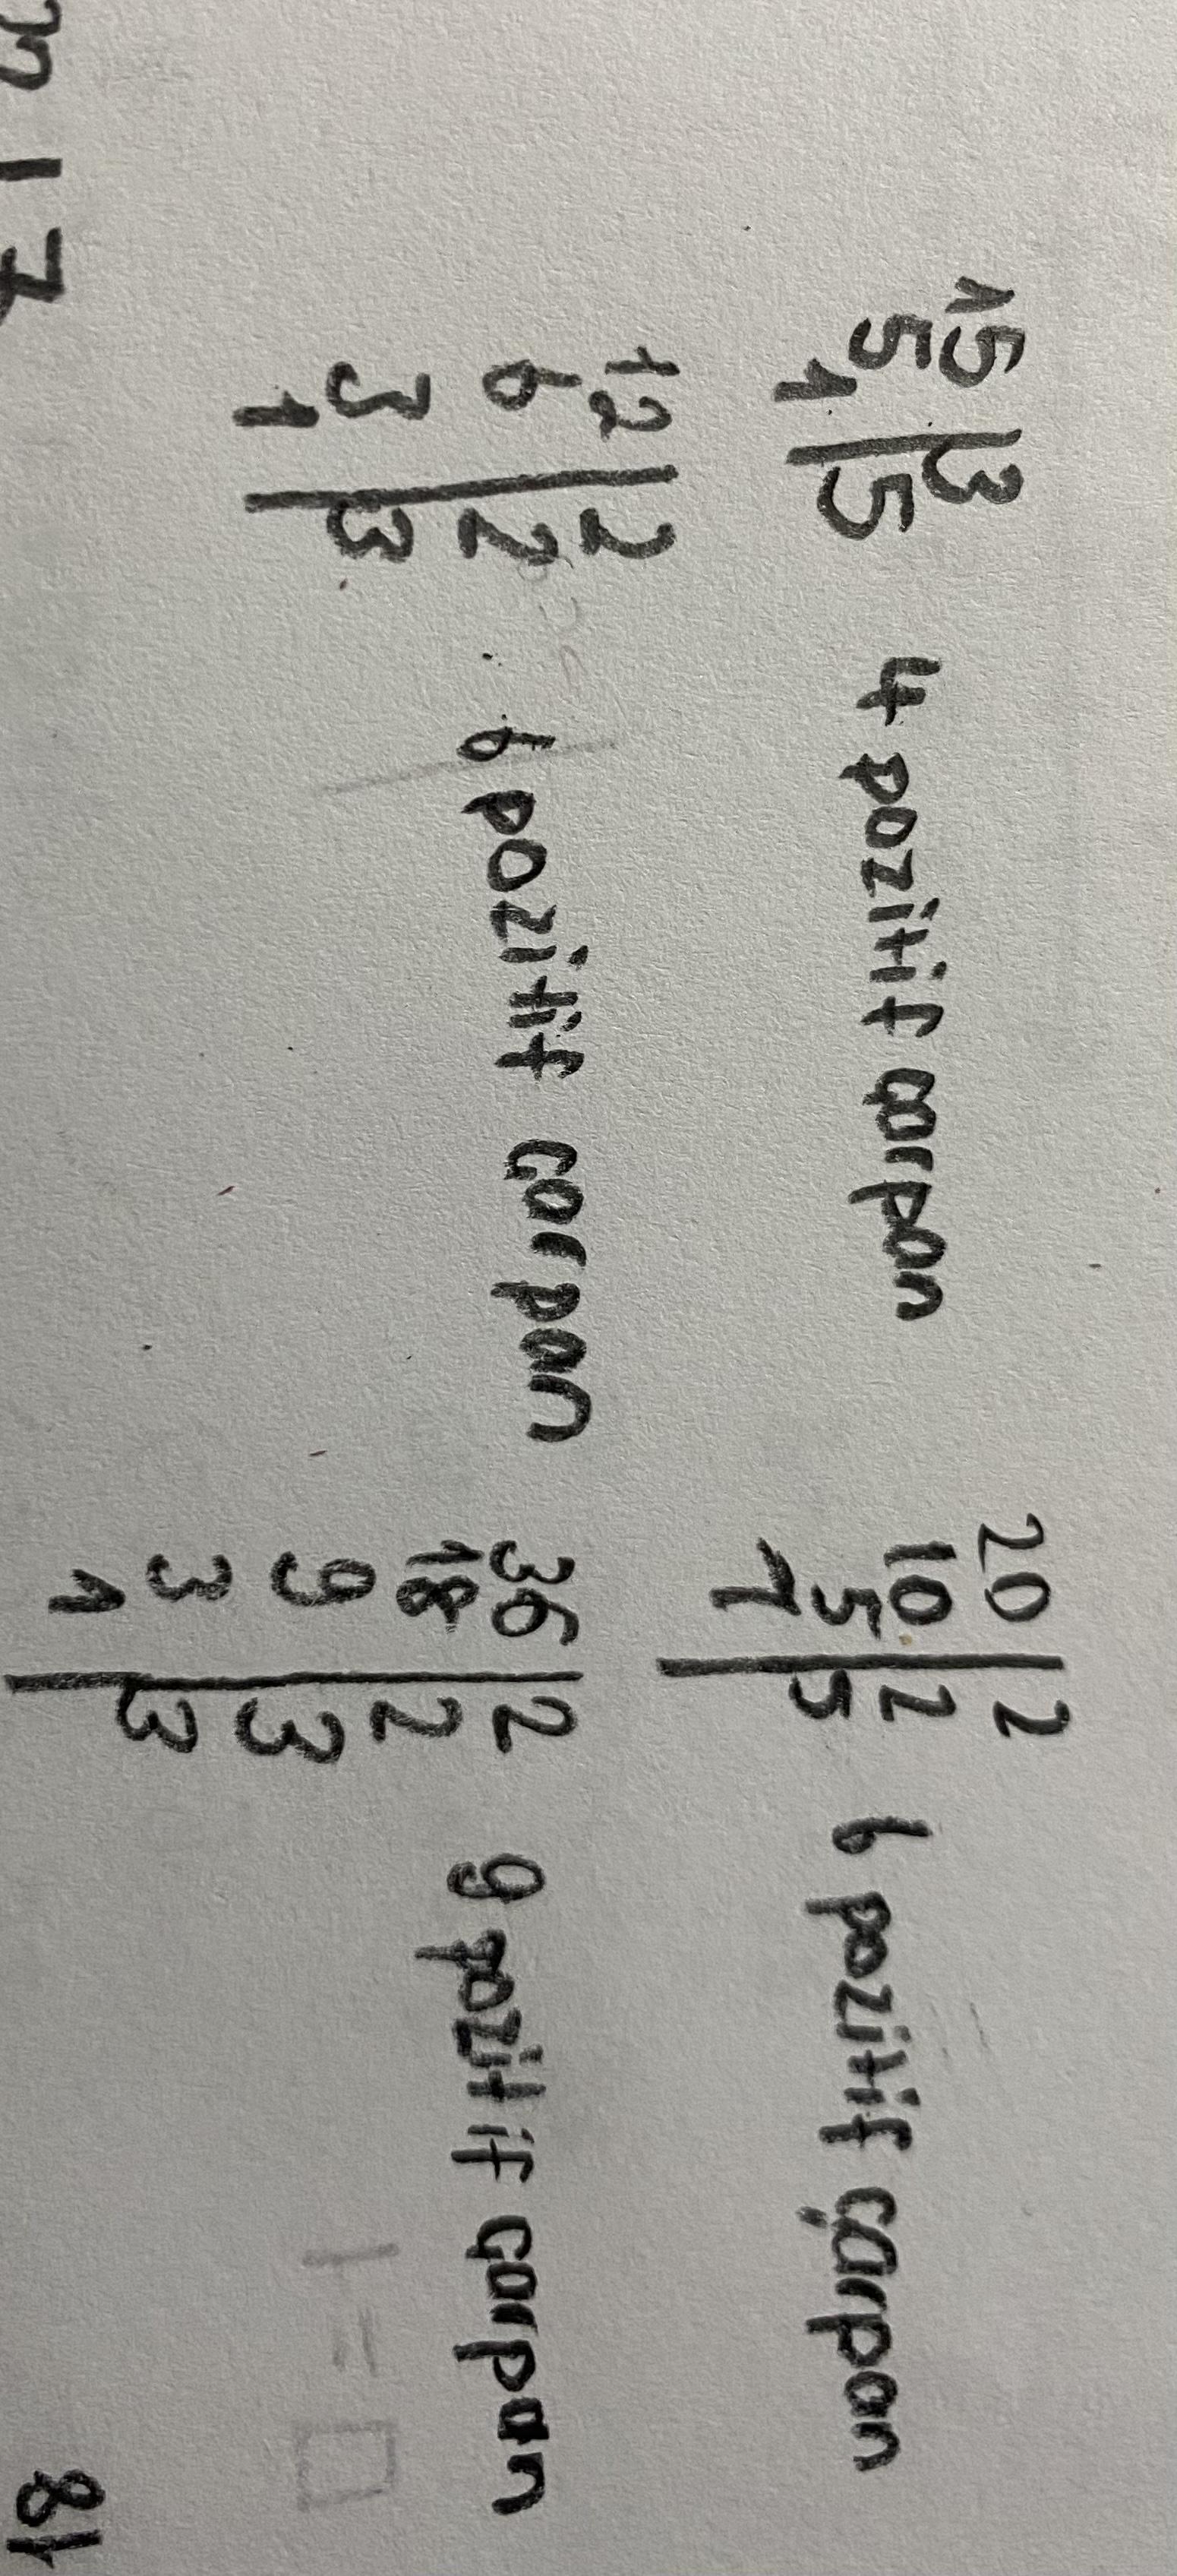 15 | 3
5 | 5
1
4 pozitif çarpan
20 | 2
10 | 2
5 | 5
1
6 pozitif çarpan
12 | 2
6 | 2
3 | 3
1
6 pozitif çarpan
36 | 2
18 | 2
9 | 3
3 | 3
1
9 pozitif çarpan